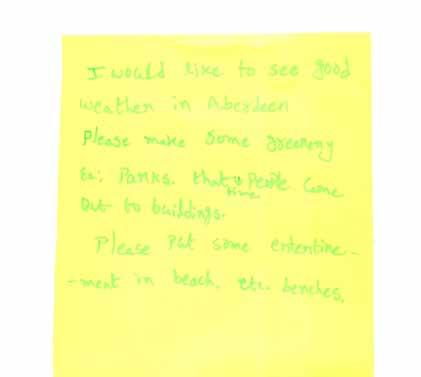 I would like to see good
weather in Aberdeen
Please make some greenery
Ex: Parks. that time People Come
Out to buildings.
Please Put some ententine-
-ment in beach. etc. benches.